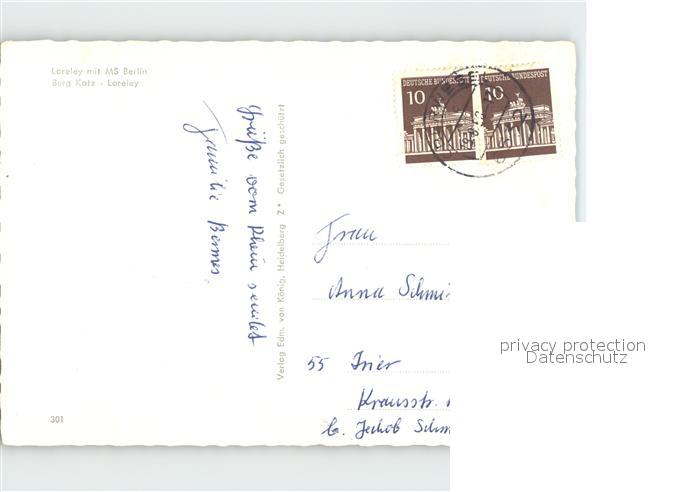 Loreley mit MS Berlin
Burg Katz - Loreley
DEUTSCHE BUNDESPOST
10
DEUTSCHE BUNDESPOST
10
Grüße vom Rhein sendet
Familie Bermes,
Verlag Edm. von König, Heidelberg Z* Gesetzlich geschützt
Frau
Anna Schmi
55 Trier
Krausstr.
b. Jakob Schm
301
privacy protection
Datenschutz